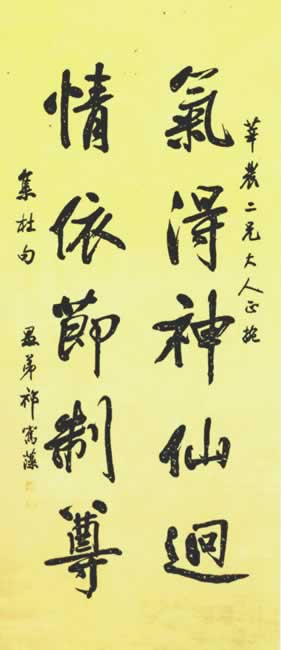 華農二兄大人正腕
氣得神仙迥
情依節制尊
集杜句
愚弟祁寯藻